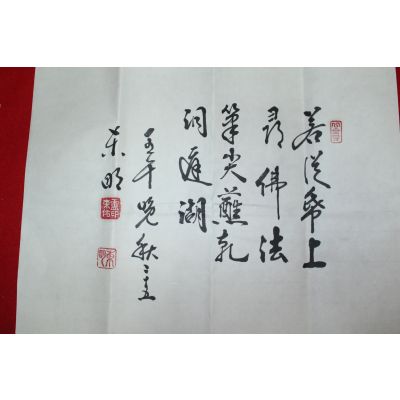 若從紙上
尋佛法
筆尖蘸乾
洞庭湖
壬午晚秋
東明